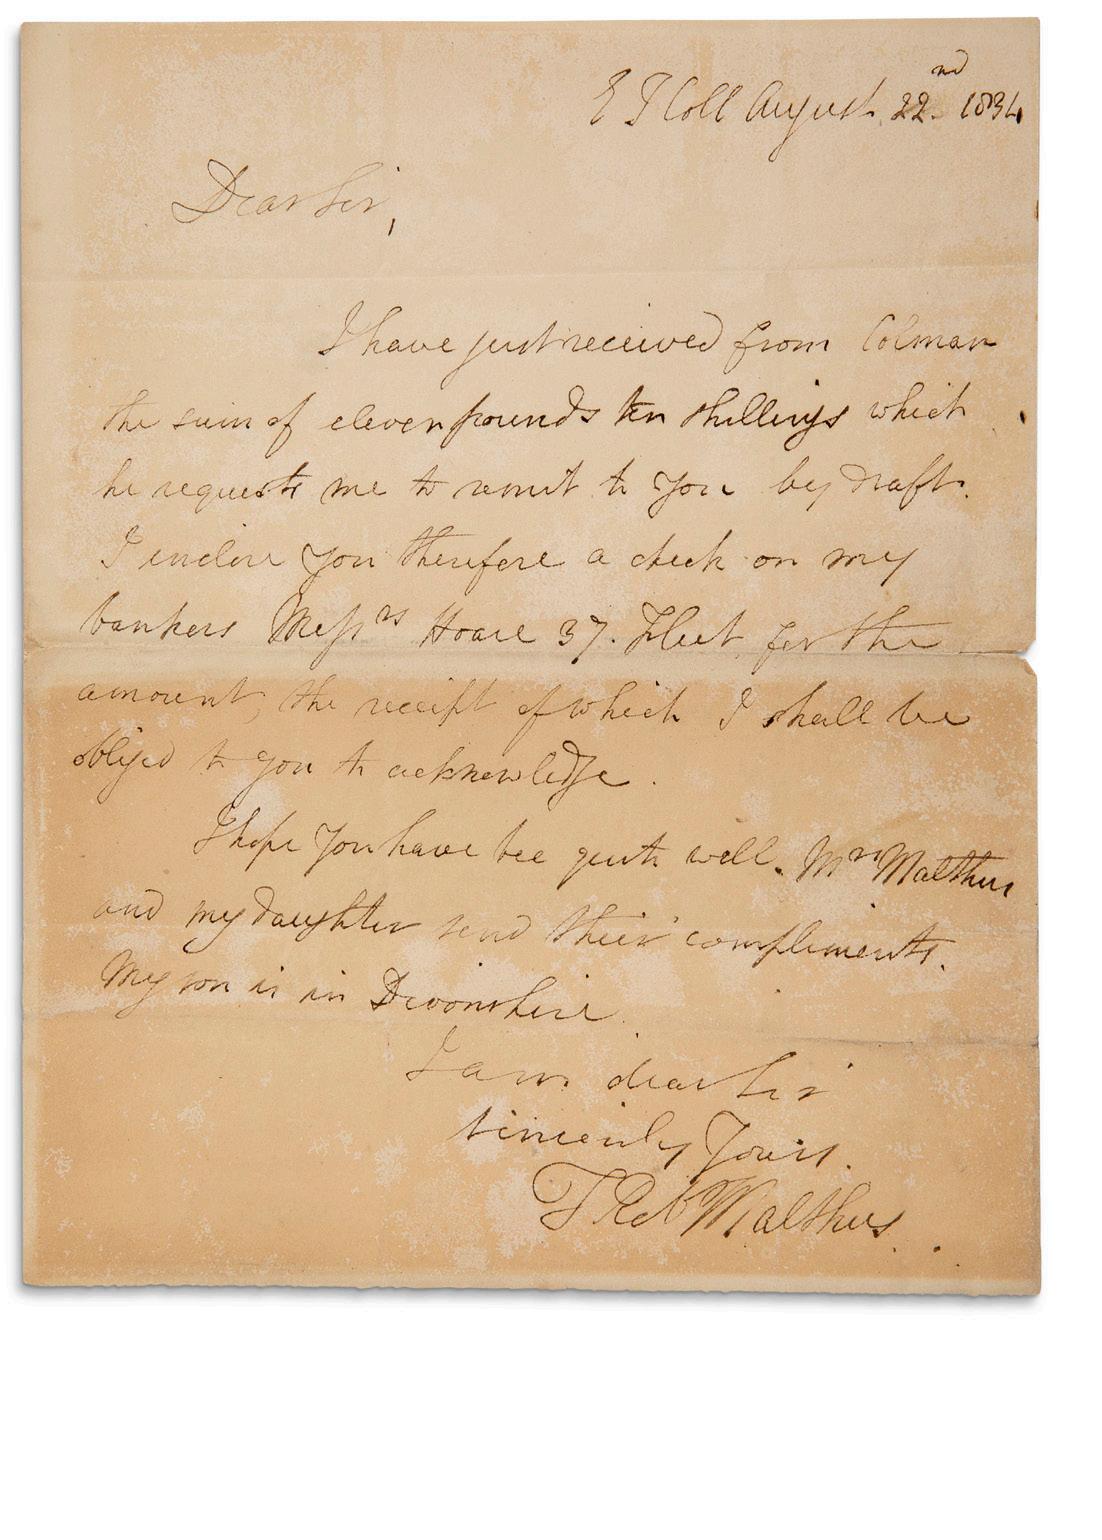 E I Coll August 22nd 1834
Dear Sir,
I have just received from Colman
the sum of eleven pounds ten shillings which
he requests me to remit to you by draft.
I enclose you therefore a check on my
bankers Messrs Hoare 37. Fleet for the
amount, the receipt of which I shall be
obliged to you to acknowledge.
I hope you have bee quite well. Mrs Malthus
and my daughter send their compliments.
My son is in Devonshire.
I am dear Sir
sincerely Yours.
T Robt Malthus.